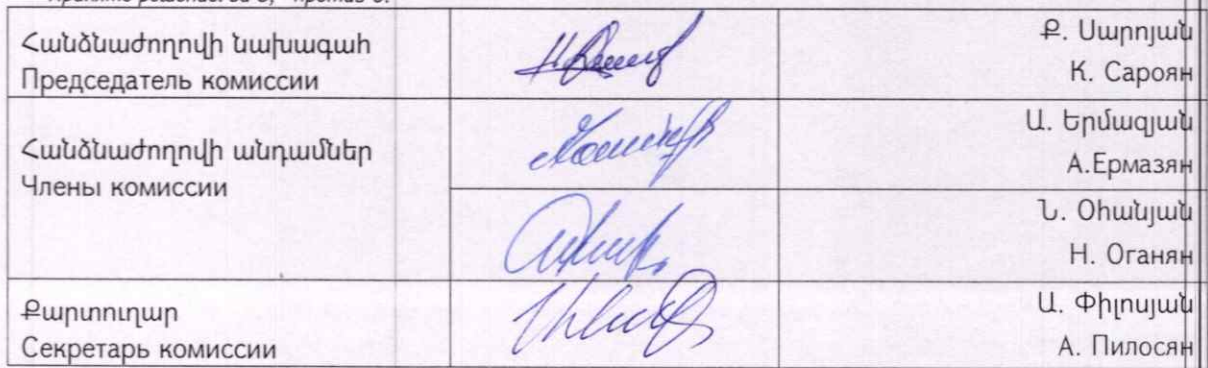 Հանձնաժողովի նախագահ
Председатель комиссии
Ք. Սարոյան
К. Сароян
Հանձնաժողովի անդամներ
Члены комиссии
Ա. Երմազյան
А.Ермазян
Ն. Օհանյան
Н. Оганян
Քարտուղար
Секретарь комиссии
Ա. Փիլոսյան
А. Пилосян